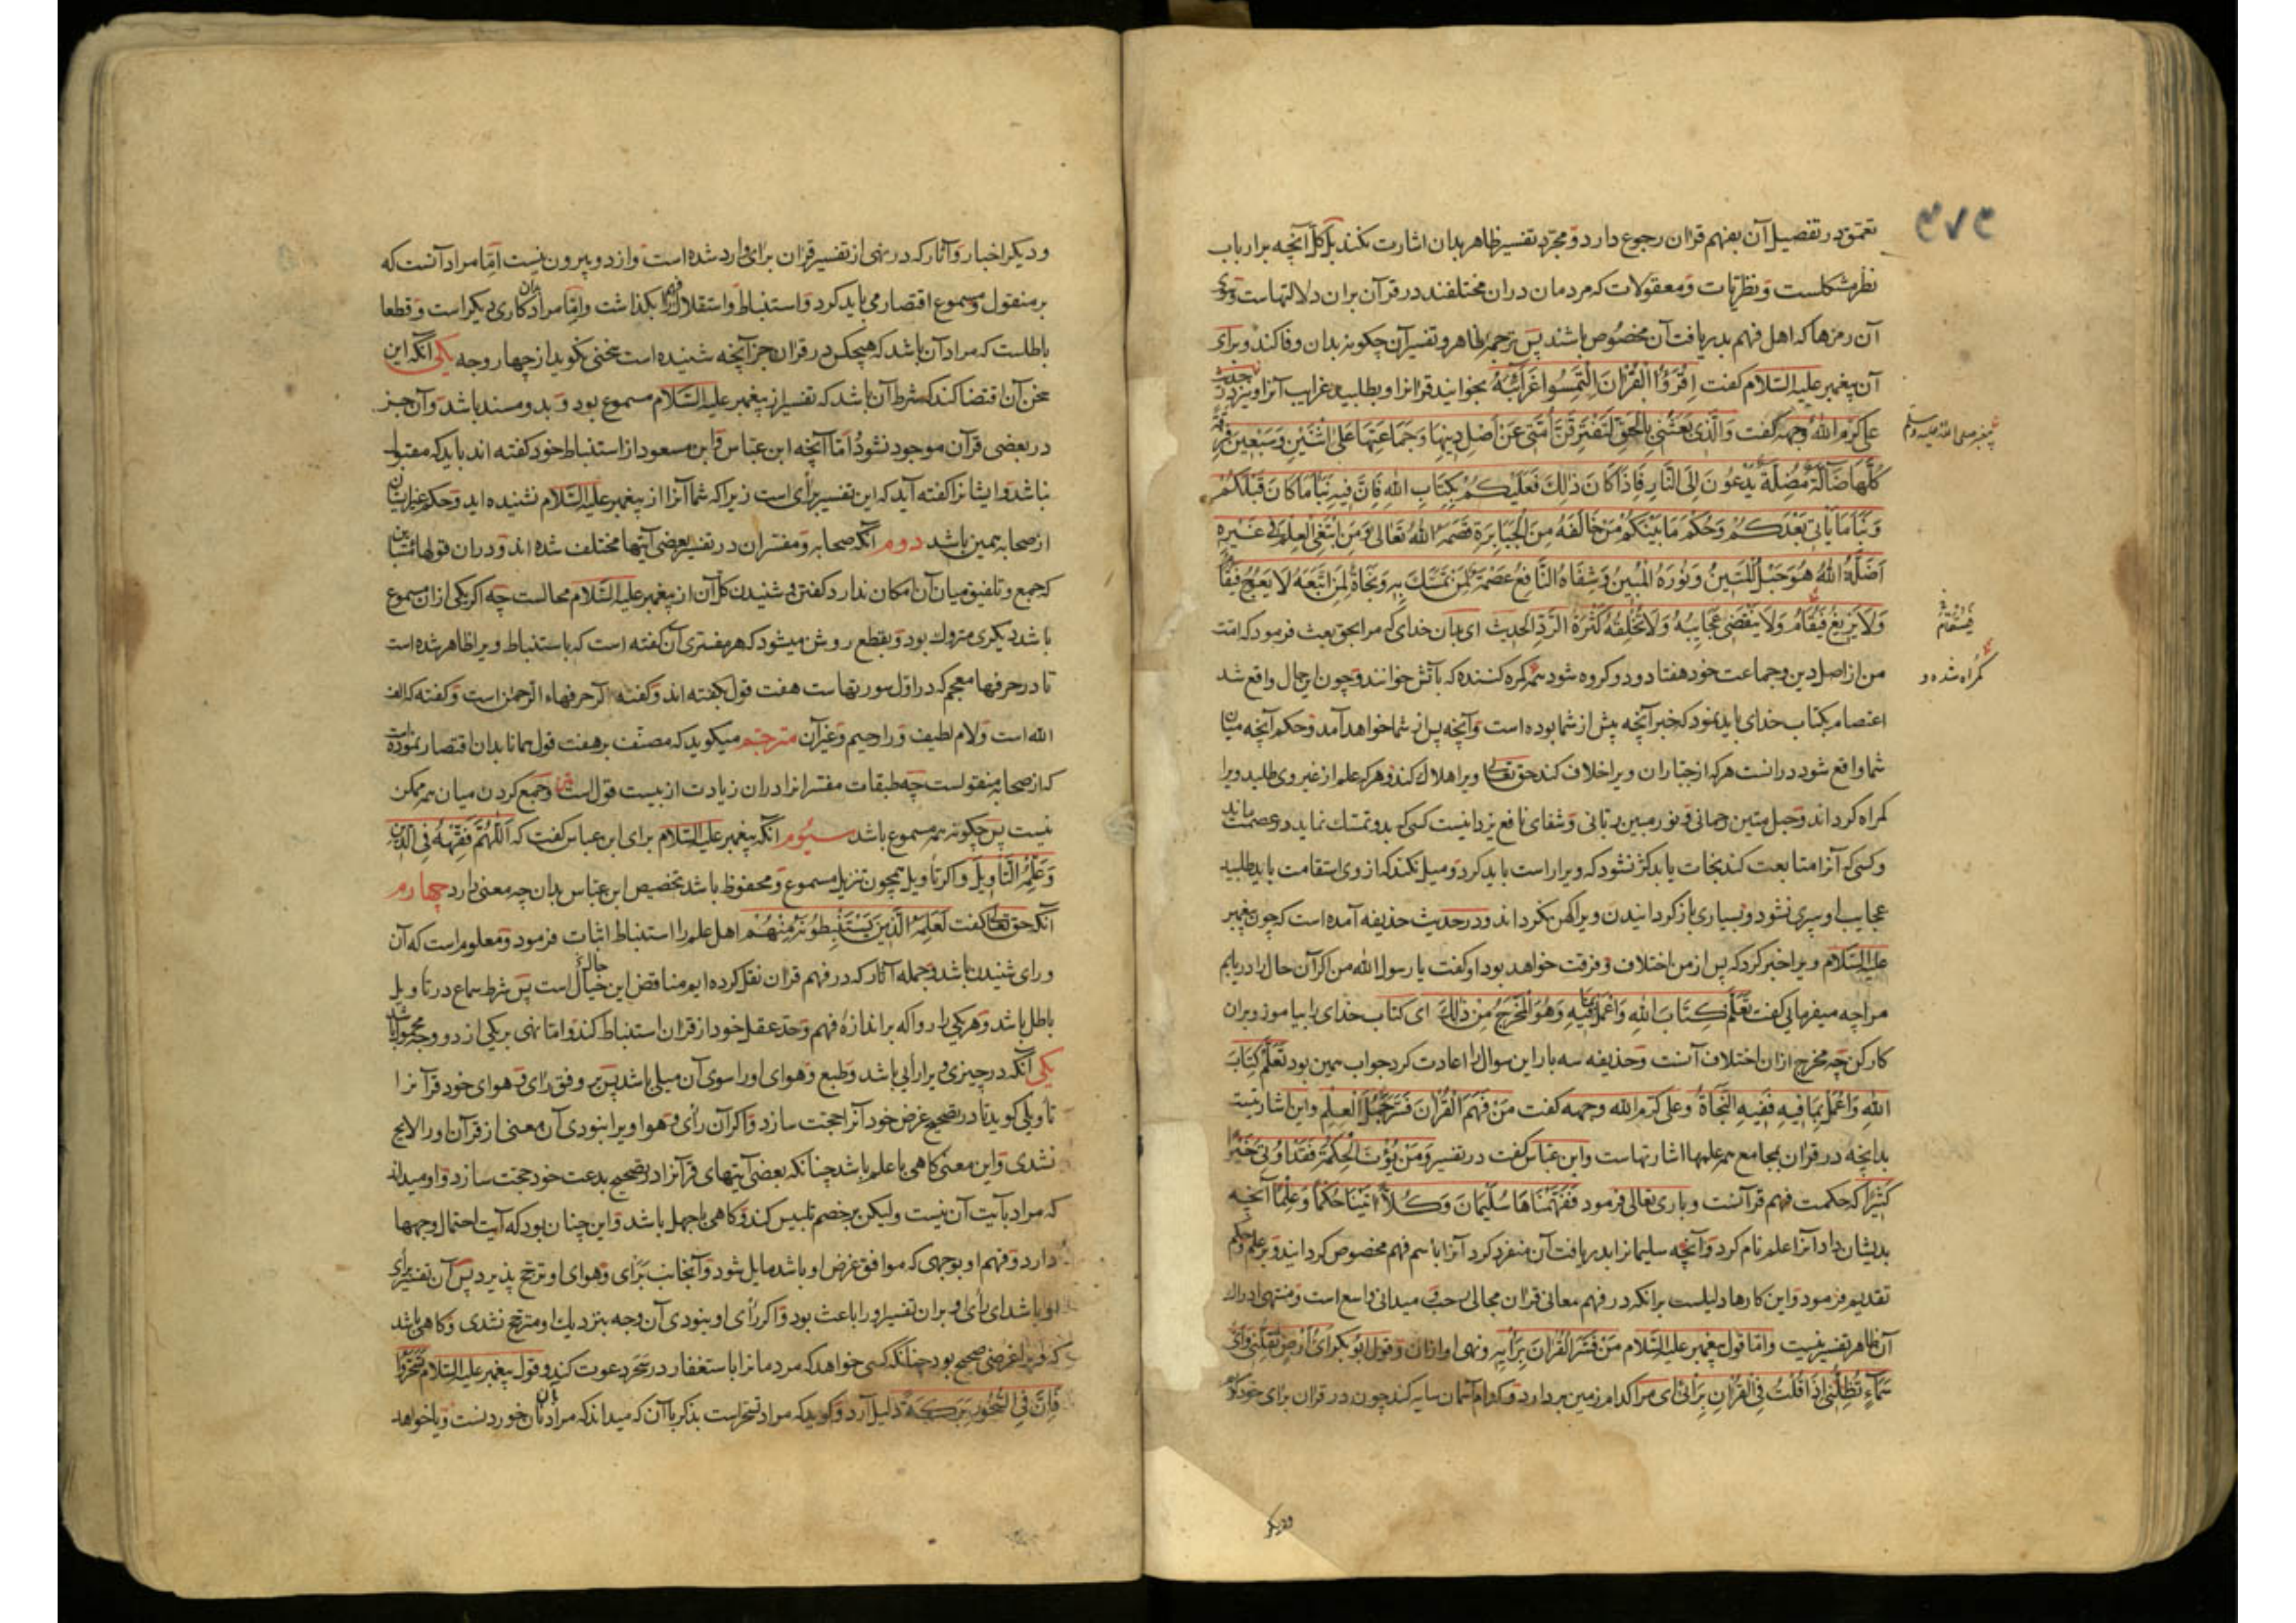 ۳۷۳
تعمق در تفصیل آن بفهم قرآن رجوع دارد و مجرد تفسیر ظاهر بدان اشارت نکند بل کل آنچه بر ارباب
نظر مشکلست و نظریات و معقولات که مردمان دران مختلفند در قرآن بران دلالتهاست و سوی
آن رمزها که اهل فهم بدریافت آن مخصوص باشند پس ترجمه ظاهر و تفسیر آن چگونه بدان وفا کند و برای
آن پیغمبر علیه السلام کفت اِقْرَؤُا الْقُرْآنَ الْتَمِسُوا غَرَائِبَهُ بخوانید قرآنرا و بطلبید غرایب آنرا و نیز در حدیث
علی کرم الله وجهه کفت وَالَّذِی بَعَثَنِی بِالْحَقِّ لَتَفْتَرِقَنَّ اُمَّتِی عَنْ اَصْلِ دِینِهَا وَجَمَاعَتِهَا عَلَی اثْنَتَیْنِ وَسَبْعِینَ فِرْقَةً
پیغمبر صلی الله علیه وسلم
کُلُّهَا ضَالَّةٌ مُضِلَّةٌ یَدْعُونَ اِلَی النَّارِ فَاِذَا کَانَ ذٰلِكَ فَعَلَیْکُمْ بِکِتَابِ اللهِ فَاِنَّ فِیهِ نَبَأَ مَا کَانَ قَبْلَکُمْ
وَنَبَأَ مَا یَأْتِی بَعْدَکُمْ وَحُکْمَ مَا بَیْنَکُمْ مَنْ خَالَفَهُ مِنَ الْجَبَابِرَةِ قَصَمَهُ اللهُ تَعَالٰی وَمَنِ ابْتَغَی الْعِلْمَ فِی غَیْرِهِ
اَضَلَّهُ اللهُ هُوَ حَبْلُ اللهِ الْمَتِینُ وَنُورُهُ الْمُبِینُ وَشِفَاهُ النَّافِعُ عِصْمَةٌ لِمَنْ تَمَسَّكَ بِهِ وَنَجَاةٌ لِمَنِ اتَّبَعَهُ لَا یَعْوَجُّ فَیُقَامُ
وَلَا یَزِیغُ فَیُقَامُ وَلَا یَنْقَضِی عَجَایِبُهُ وَلَا تُخْلِقُهُ کَثْرَةُ الرَّدِّ الحدیث ای بدان خدای که مرا بحق بعث فرمود که امت
فیستقام
من از اصل دین و جماعت خود هفتاد و دو کروه شود همه کمره کننده که بآتش خوانند و چون این حال واقع شد
کمراه شده و
اعتصام بکتاب خدای باید نمود که خبر آنچه پیش از شما بوده است و آنچه پس از شما خواهد آمد و حکم آنچه میان
شما واقع شود درانست هرکه از جباران ویرا خلاف کند حق تعالی ویرا هلاك کند و هرکه علم از غیر وی طلبد ویرا
کمراه کرداند و حبل متین رحمانی و نور مبین ربانی و شفای نافع یزدانیست کسی که بدو تمسك نماید در عصمت ماند
و کسی که آنرا متابعت کند نجات یابد کژ نشود که ویرا راست باید کرد و میل نکند که از وی استقامت باید طلبید
عجایب او سپری نشود و بسیاری باز کردانیدن ویرا کهن نکرداند و در حدیث حذیفه آمده است که چون پیغمبر
علیه السلام ویرا خبر کرد که پس از من اختلاف و فرقت خواهد بود او کفت یا رسول الله من اکر آن حال را دریابم
مرا چه میفرمایی کفت تَعَلَّمْ کِتَابَ اللهِ وَاعْمَلْ بِمَا فِیهِ وَهُوَ الْمَخْرَجُ مِنْ ذٰلِكَ ای کتاب خدای را بیاموز و بران
کار کن چه مخرج ازان اختلاف آنست و حذیفه سه بار این سوال را اعادت کرد جواب همین بود تَعَلَّمْ کِتَابَ
اللهِ وَاعْمَلْ بِمَا فِیهِ فَفِیهِ النَّجَاةُ و علی کرم الله وجهه کفت مَنْ فَهِمَ الْقُرْآنَ فَسَّرَ جُمَلَ الْعِلْمِ و این اشارتیست
بدانچه در قرآن بمجامع همه علمها اشارتهاست و ابن عباس کفت در تفسیر وَمَنْ یُؤْتَ الْحِکْمَةَ فَقَدْ اُوتِیَ خَیْرًا
کَثِیرًا که حکمت فهم قرآنست و باری تعالی فرمود فَفَهَّمْنَاهَا سُلَیْمَانَ وَکُلًّا اٰتَیْنَا حُکْمًا وَعِلْمًا آنچه
بدیشان داد آنرا علم نام کرد و آنچه سلیمانرا بدریافت آن منفرد کرد آنرا باسم فهم مخصوص کردانید و بر علم و حکم
تقدیم فرمود و این کارها دلیلست برانکه در فهم معانی قرآن مجالی رحب و میدانی واسع است و منتهی ادراك
آن ظاهر تفسیر نیست و اما قول پیغمبر علیه السلام مَنْ فَسَّرَ الْقُرْآنَ بِرَأْیِهِ و نهی او ازان و قول ابو بکر اَیُّ اَرْضٍ تُقِلُّنِی وَاَیُّ
سَمَآءٍ تُظِلُّنِی اِذَا قُلْتُ فِی الْقُرْآنِ بِرَأْیِی ای مرا کدام زمین بردارد و کدام آسمان سایه کند چون در قرآن برای خود کویم
ودیکر
ودیکر اخبار و آثار که در نهی از تفسیر قرآن برای وارد شده است و از دو بیرون نیست اما مراد آنست که
بر منقول و مسموع اقتصار می باید کرد و استنباط و استقلال فهم را بگذاشت و اما مراد بران کاری دیکر است و قطعا
باطلست که مراد آن باشد که هیچکس در قرآن جز آنچه شنیده است سخنی نکوید از چهار وجه یکی آنکه این
سخن آن اقتضا کند که شرط آن باشد که تفسیر از پیغمبر علیه السلام مسموع بود و بدو مسند باشد و آن جز
در بعضی قرآن موجود نشود اما آنچه ابن عباس و ابن مسعود از استنباط خود کفته اند باید که مقبول
نباشد و ایشانرا کفته آید که این تفسیر برای است زیرا که شما آنرا از پیغمبر علیه السلام نشنیده اید و حکم غیر ایشان
از صحابه همین باشد دوم آنکه صحابه و مفسران در تفسیر بعضی آیتها مختلف شده اند و دران قولها متباین
که جمع و تلفیق میان آن امکان ندارد کفتن و شنیدن کل آن از پیغمبر علیه السلام محالست چه اکر یکی ازان مسموع
باشد دیکری متروك بود و بقطع روشن میشود که هر مفسری آن کفته است که باستنباط ویرا ظاهر شده است
تا در حرفها معجم که در اول سورتهاست هفت قول کفته اند و کفته اند الر حرفهاء الرحمن است و کفته که الف
الله است و لام لطیف و را رحیم و غیر آن مترجم میکوید که مصنف بر هفت قول همانا بدان اقتصار نموده است
که از صحابه منقولست چه طبقات مفسرانرا دران زیادت از بیست قول است و جمع کردن میان همه ممکن
نیست پس چکونه همه مسموع باشد سیوم آنکه پیغمبر علیه السلام برای ابن عباس کفت که اَللّٰهُمَّ فَقِّهْهُ فِی الدِّینِ
وَعَلِّمْهُ التَّأْوِیلَ و اکر تأویل همچون تنزیل مسموع و محفوظ باشد تخصیص ابن عباس بدان چه معنی دارد چهارم
آنکه حق تعالی کفت لَعَلِمَهُ الَّذِینَ یَسْتَنْبِطُونَهُ مِنْهُمْ اهل علم را استنباط اثبات فرمود و معلوم است که آن
ورای شنیدن باشد و جمله آثار که در فهم قرآن نقل کرده ایم مناقض این خیال است پس شرط سماع در تأویل
باطل باشد و هر یکی را روا که بر اندازهٔ فهم و حد عقل خود از قرآن استنباط کند و اما نهی بر یکی از دو وجه محمول باشد
یکی آنکه در چیزی ویرا رأیی باشد و طبع و هوای او را سوی آن میلی باشد پس بر وفق رای و هوای خود قرآنرا
تأویلی کوید تا در تصحیح غرض خود آنرا حجت سازد و اکر آن رأی و هوا ویرا نبودی آن معنی از قرآن او را لایح
نشدی و این معنی کاهی با علم باشد چنانکه بعضی آیتهای قرآنرا در تصحیح بدعت خود حجت سازد و او میداند
که مراد بآیت آن نیست ولیکن بر خصم تلبیس کند و کاهی با جهل باشد و این چنان بود که آیت احتمال وجهها
دارد و فهم او بوجهی که موافق غرض او باشد مایل شود و آنجانب برای و هوای او ترجح پذیرد پس آن تفسیر برای
او باشد ای رأی او بران تفسیر او را باعث بود و اکر رأی او نبودی آن وجه بنزدیك او مترجح نشدی و کاهی باشد
که ویرا غرضی صحیح بود چنانکه کسی خواهد که مردمانرا باستغفار در سحر دعوت کند و قول پیغمبر علیه السلام تَسَحَّرُوا
فَاِنَّ فِی السَّحُورِ بَرَکَةً دلیل آرد و کوید که مراد تسحر است بذکر با آن که میداند که مراد بآن خوردنست و یا خواهد